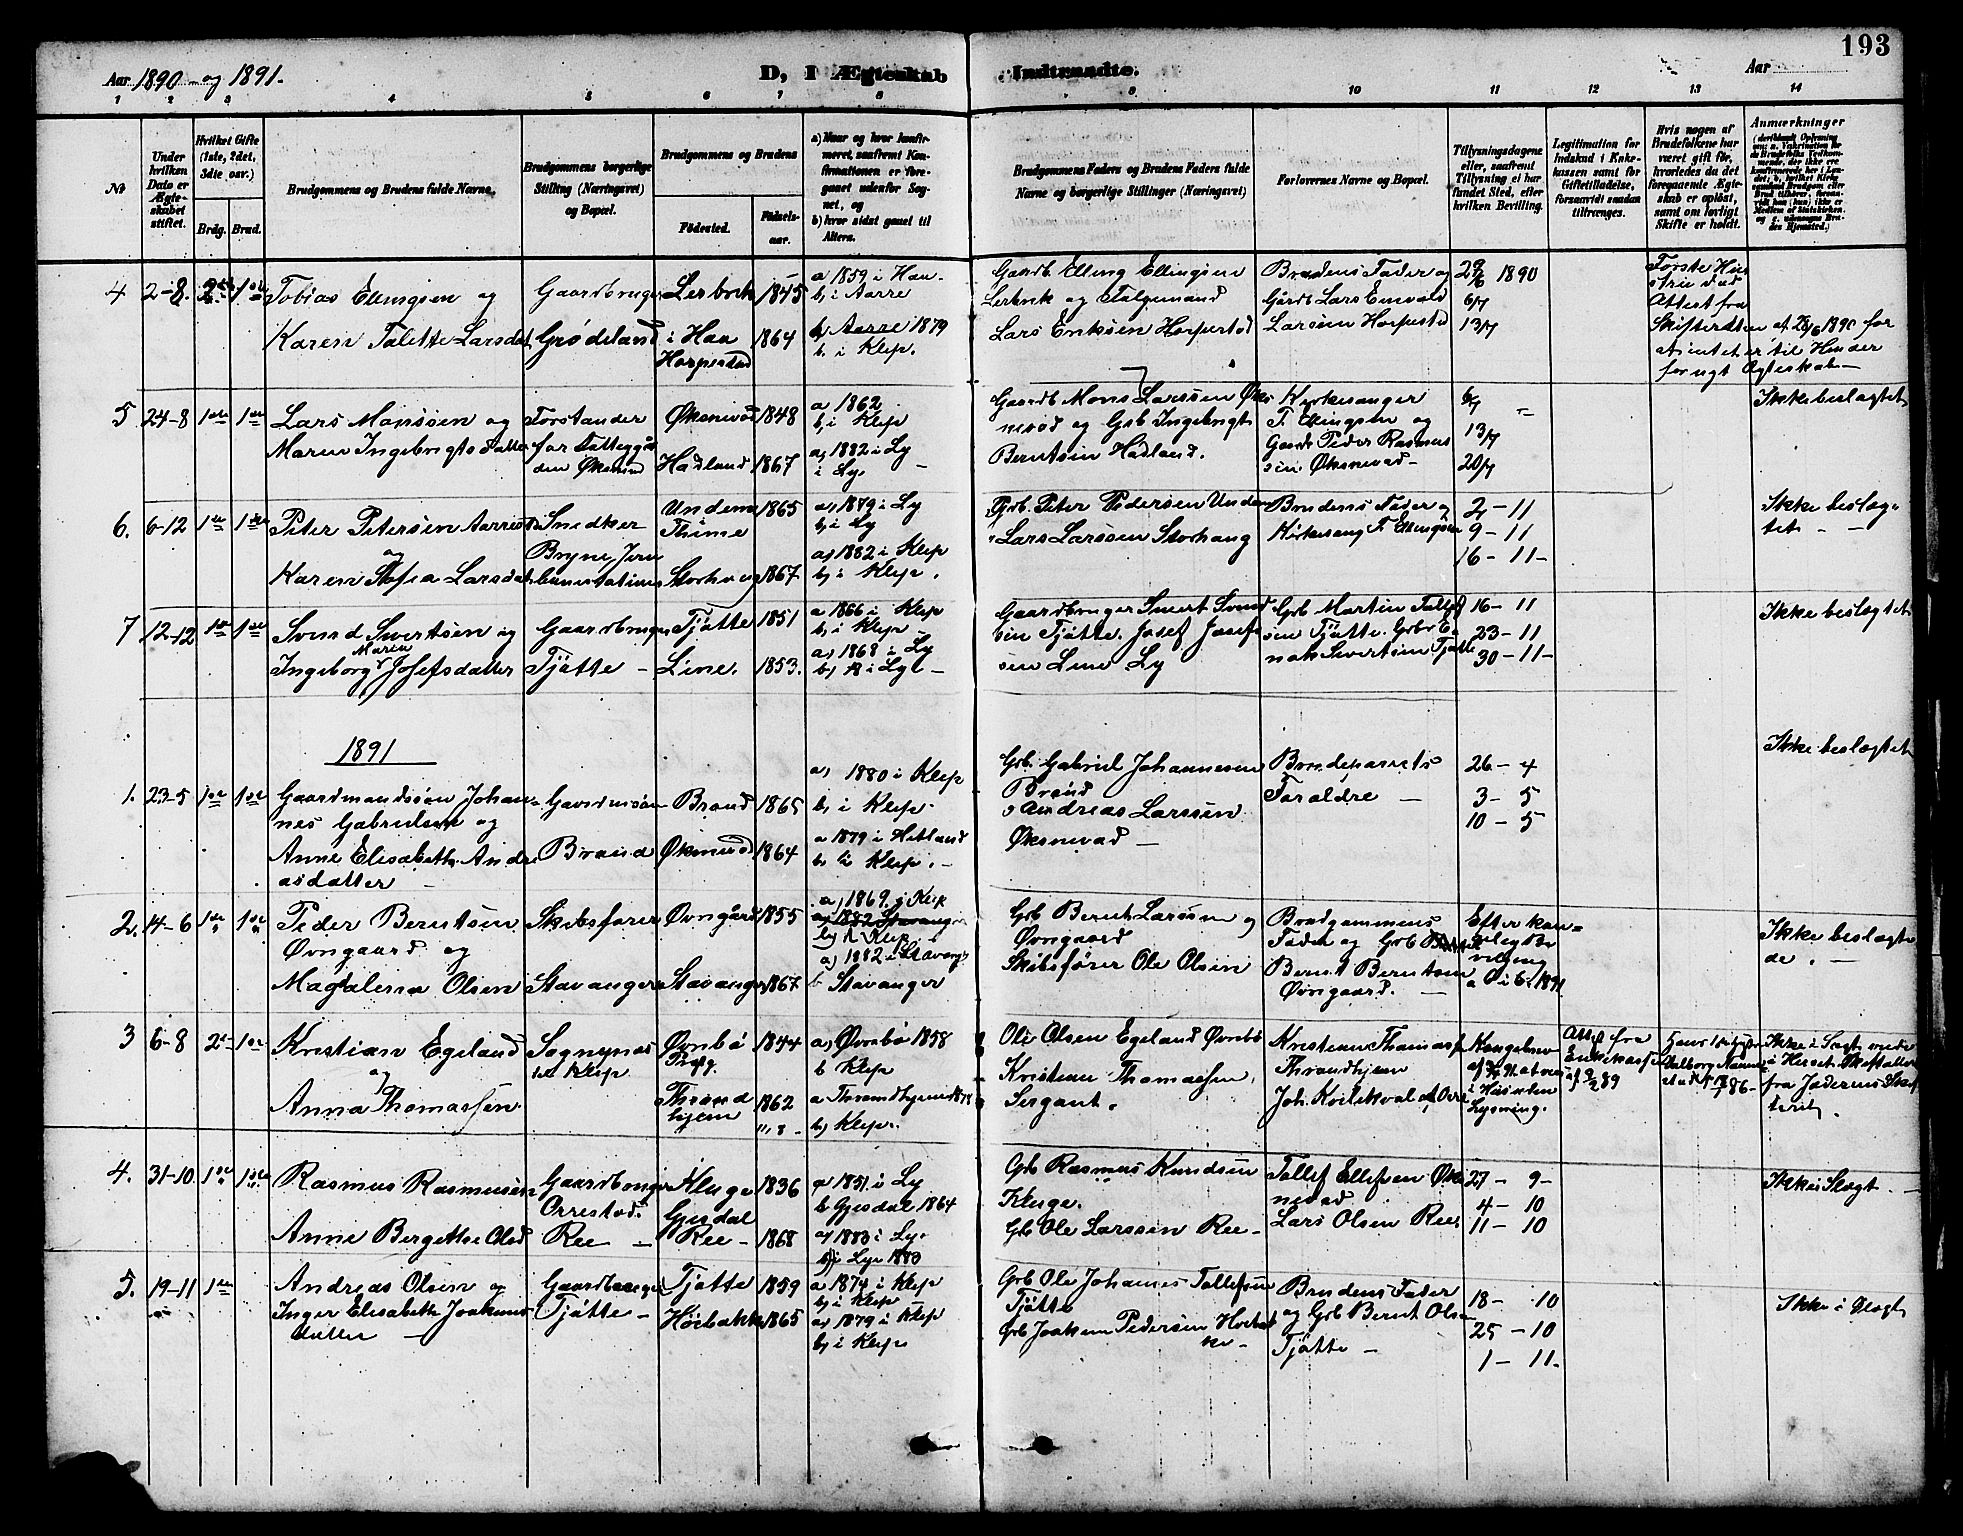 193
Aar 1890 og 1891.
D, I Ægteskab Indtraadte.
Aar
1 2 3 4 5 6 7 8 9 10 11 12 13 14
№
Under hvilken Dato er Ægteskabet stiftet.
Hvilket Gifte (1ste, 2det, 3die osv.)
Brdg. Brud.
Brudgommens og Brudens fulde Navne.
Brudgommens borgerlige Stilling (Næringsvei) og Bopæl.
Brudgommens og Brudens
Fødested. Fødselsaar.
a) Naar og hvor konfirmeret, saafremt Konfirmationen er foregaaet udenfor Sognet, og
b) hvor sidst gaaet til Alters.
Brudgommens Faders og Brudens Faders fulde Navne og borgerlige Stillinger (Næringsvei)
Forlovernes Navne og Bopæl.
Tillysningsdagene eller, saafremt Tillysning ei har fundet Sted, efter hvilken Bevilling.
Legitimation for Indskud i Enkekassen samt for Giftetilladelse, forsaavidt saadan tiltrænges.
Hvis nogen af Brudefolkene har været gift før, hvorledes da det foregaaende Ægteskab er opløst, samt om lovligt Skifte er holdt.
Anmærkninger
4 2-8. 2den 1ste
Tobias Ellingsen og
Karen Talette Larsdat
Gaardbruger
Grødeland
Lerbrek 1845
i Haa
Horpestad 1864
a 1859 i Haa
b, i Aarre
b, Aarre 1879
b. i Klep.
Gaardb Elling Ellingsen
Lerbrek og Følgemand
Lars Eriksen Horpestad
Brudens Fader og
Gårdb Lars Enevald
Larsen Horpestd
29/6 1890
6/7
13/7
Første Hu
stru død
Attest fra
Skifteretten af 28/6 1890 for
at intet er til Hinder
for nyt Ægteskab
5 24-8 1ste 1ste
Lars Monsson og
Maren Ingebrigts Datter
Forstander
for Fattiggår
den Øksnev
Øksnevad 1848
Hadland 1867
a) 1862
b, i Klep
a) 1882 i Ly
i Ly.
Gaardb Mons Larsson Øks
nevad og Grb Ingebrigt
Berntsen Hadland.
Kirkesanger
T. Ellingsen og
Gaardb Peder Rasmus
sen Øksnevad
6/7
13/7
20/7
Ikke beslægtet
6. 6-12 1ste 1ste
Peter Petersen Aarrest
og
Karen Sofia Larsdat
Snedker
Bryne Jern
banestation
Undem 1865
Thime
Storhaug 1867
a) 1879 i Ly
b, i Ly
a) 1882 i Klep
b, i Klep.
Grb. Peter Pedersen Undem
Lars Larssen Storhaug
Brudens Fader og
Kirkesang T. Ellingsen
2 - 11
9 - 11
16 - 11 -
Ikke beslæg-
tet
7 12-12 1ste 1ste
Svend Sivertsen og
Maren
Ingeborg Josefsdatter
Gaardbruger
Tjøtte
Tjøtte 1851
Line. 1853.
a 1866 i Klep
b, i Klep
a) 1868 i Ly
Gaardbruger Sivert Svend
sen Tjøtte. Josef Josef
sen Line Ly
Grb Martin Tollef
sen Tjøtte. Grbr E
nok Sivertsen Tjøtte
16 - 11
23 - 11
30 - 11 -
Ikke beslægtet
1891
1. 23-5 1ste 1ste
Gaardmandssøn Johan
nes Gabrielsen og
Anne Elisabeth Andre
asdatter
Gaardmssøn
Braud
Braud 1865
Øksnevad 1864
a) 1880 i Klep
b, i Klep.
a 1879 i Hetland
b, i Klep.
Grb. Gabriel Johannesen
Braud
Andreas Larssen
Øksnevad
Brudeparrets
Foraldre
26 - 4
3 - 5
10 - 5
Ikke beslægtet
2. 14-6 1ste 1ste
Peder Berntsen
Øvngaard og
Magdalena Olsen
Skibsfører
Stavanger
Øvngård 1855
Stavanger 1867
a) 1869. i Klep
a) 1882 Stavanger
b, i Klep
a) 1882 i Stavang
b Stavanger
Grb Bernt Larsen og
Øvngaard
Skibsfører Ole Olsen
Brudgommens
Fader og Grb
Bernt Berntsen
Øvngaard.
Efter kon-
gelig Be
vilgng
a Ø i 6. 1891
Ikke beslægte
de.
3 6-8 2de 1ste
Kristian Egeland
og
Anna Thomassen
Sogneprest
Klep
Øvrebø 1844
Thrond
hjem 1862
a) Øvrebø 1858
b Klep
a Throndhjem 1878
b) Klep.
Ole Olsen Egeland Øvrebø
Kristian Thomassen,
Sergant.
Kristian Thomass
Throndhjem
Joh. Kverkeval d, Orre
Kongebrev
Lysning.
Attest fra
Enkekassen
af 9/2 89
4. 31-10. 1ste 1ste
Rasmus Rasmusen
Anne Bergette Olsd
Gaardbruger
Orrestad.
Ree
Kluge 1836
Gjesdal
Ree 1868
a) 1851 i Ly
b Gjesdal 1864
a) 1883 i Ly.
b) i Ly. 1883
Grb Rasmus Knudsen
Kluge.
Grb Ole Larssen Ree
Tollef Ellefsen Øks
nevad
Lars Olsen Ree
27 - 9 -
4 - 10
11 - 10
Ikke i Slægt.
5. 19-11 1ste
Andreas Olsen og
Inger Elisabeth Joakims
datter
Gaardbruger
Tjøtte
Tjøtte 1859
Høibakke 1865
a 1874 i Klep
b, i Klep
a) 1879 i Klep
b, i Klep
Grb Ole Johannes Tollefsen
Tjøtte
Grb Joakim Pedersen Hoibak
ke
Brudens Fader
og Grb Bernt Olsen
Tjøtte
18 - 10
25 - 10
1 - 11.
Ikke i Slægt